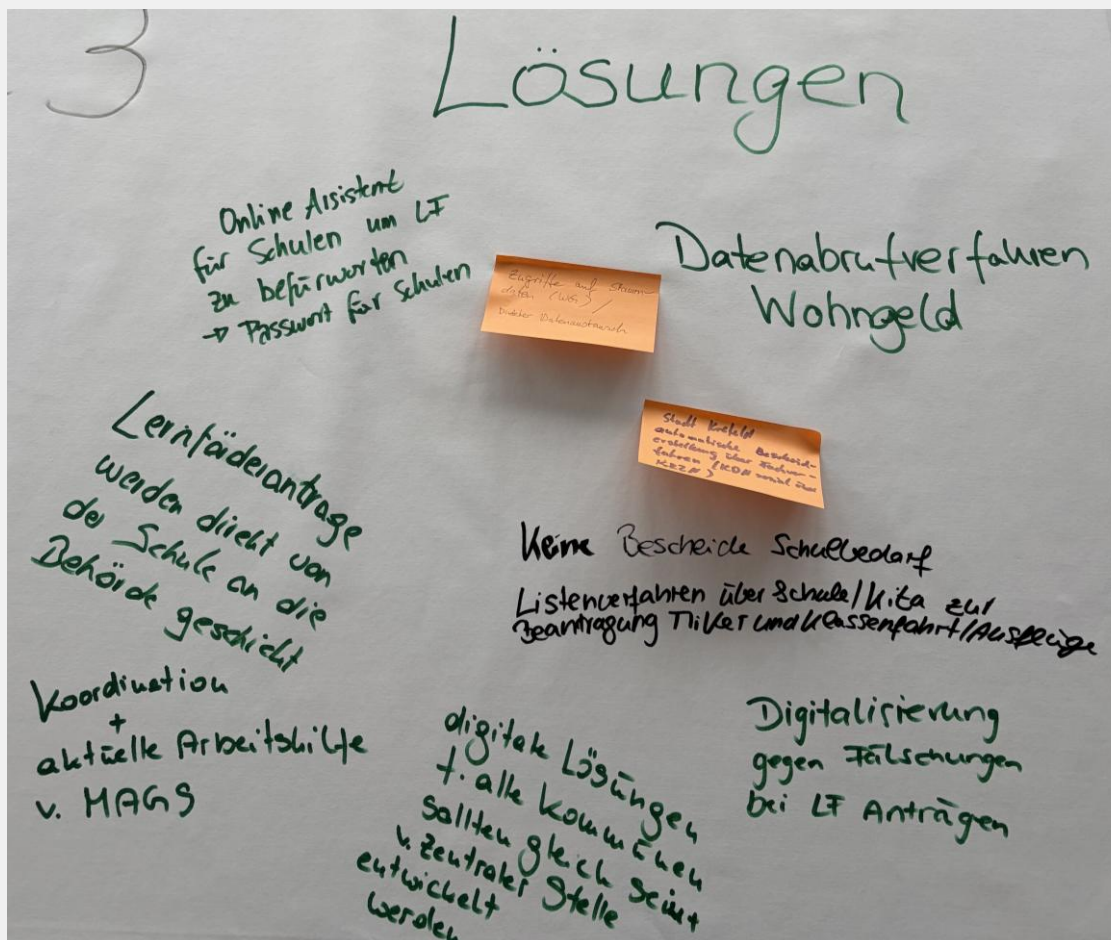 3
Lösungen
Online Assistent
für Schulen um LF
zu befürworten
→ Passwort für Schulen
Zugriffe auf Stamm-
daten (WG) /
Direkter Datenaustausch
Datenabrufverfahren
Wohngeld
Stadt Krefeld
automatische Bescheid-
erstellung über Fachver-
fahren (KDN sozial über
KRZN)
Lernförderanträge
werden direkt von
der Schule an die
Behörde geschickt
Keine Bescheide Schulbedarf
Listenverfahren über Schule/Kita zur
Beantragung und Klassenfahrt/Ausflüge
Koordination
+
aktuelle Arbeitshilfe
v. MAGS
digitale Lösungen
f. alle Kommunen
sollten gleich sein +
v. zentraler Stelle
entwickelt
werden
Digitalisierung
gegen Fälschungen
bei LF Anträgen